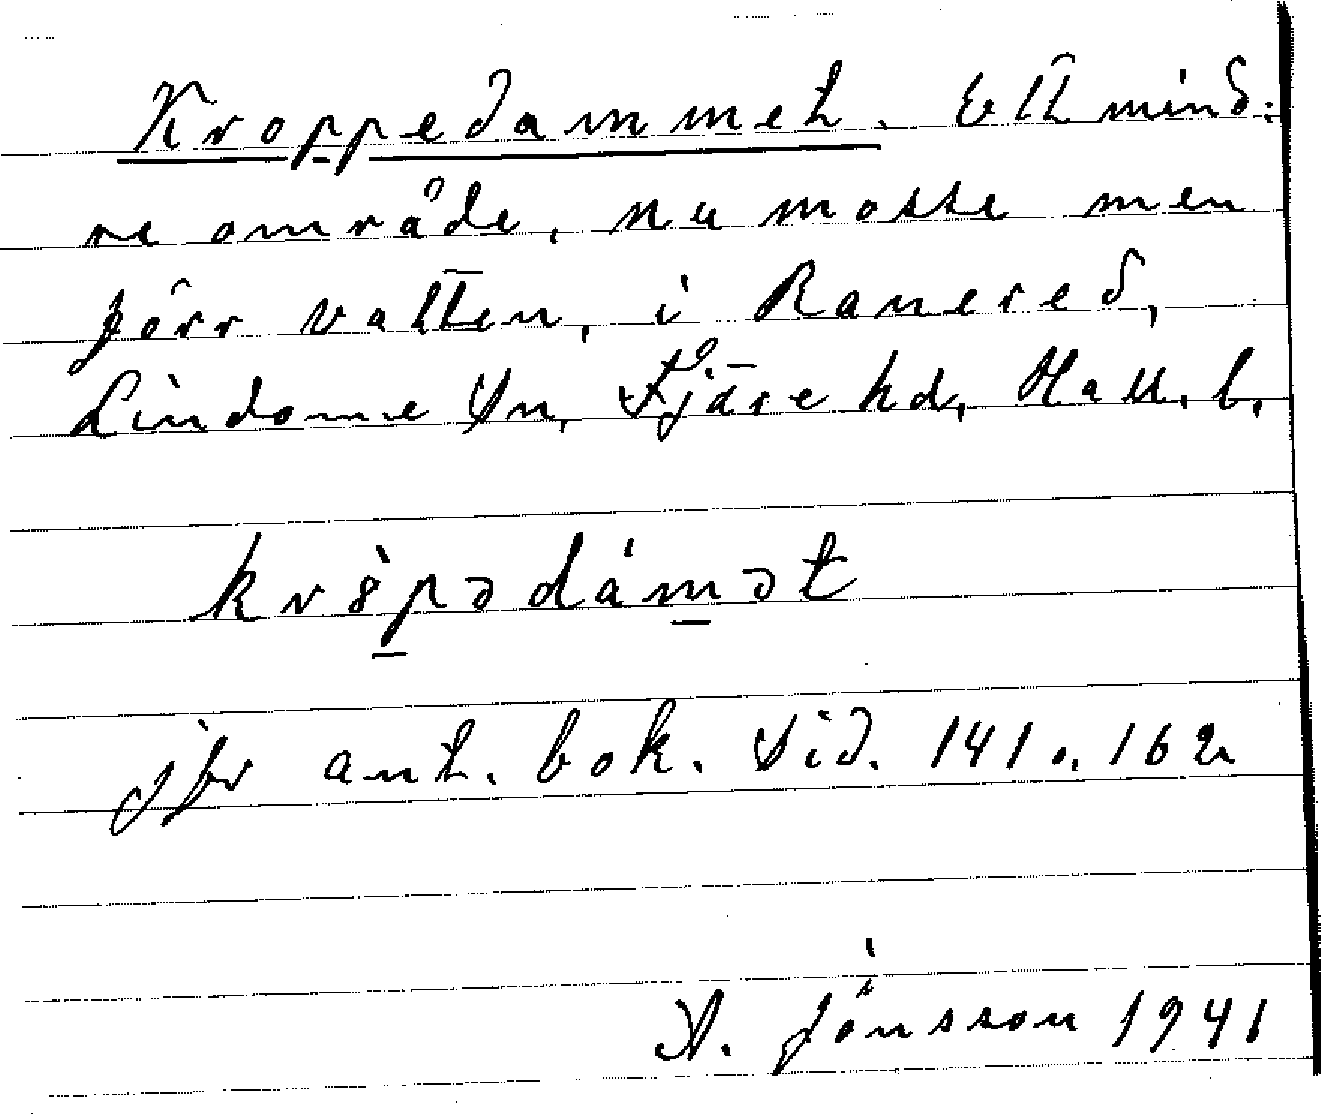 Kroppedammet. Ett mind-
re område, nu mosse men
förr vatten, i Ranered,
Lindome sn, Fjäre hd, Hall. l.
kr8̀pədámət
jfr ant. bok. sid. 141 o. 162
A. Jönsson 1941